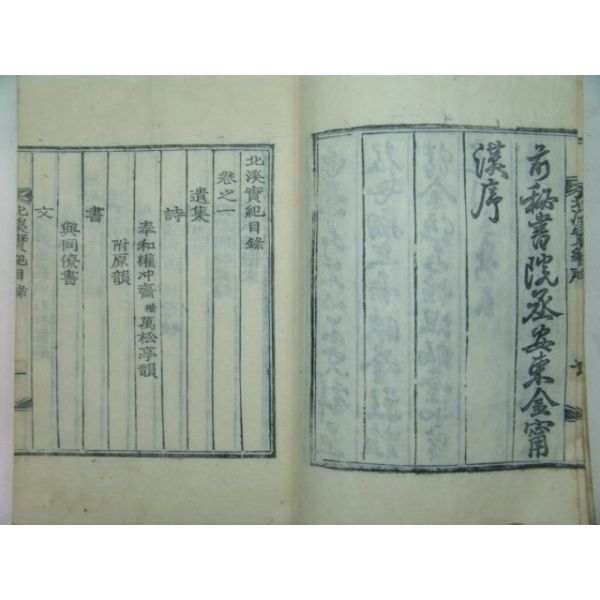 前秘書院丞安東金甯
漢序
北溪實紀目錄
卷之一
遺集
詩
奉和權冲齋橃萬松亭韻
附原韻
書
與同僚書
文
北溪實紀目錄
一